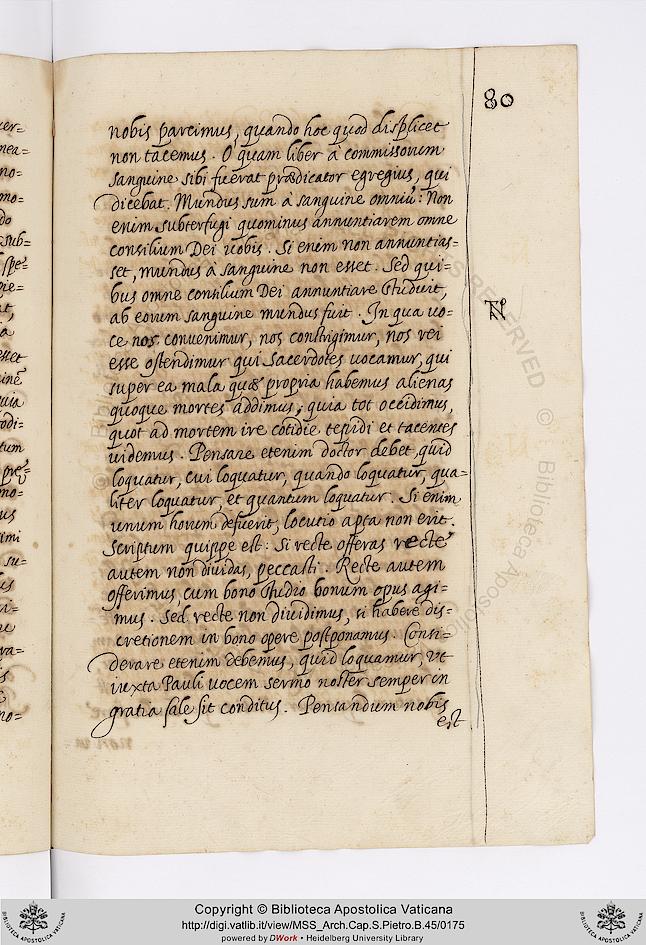 80
nobis parcimus, quando hoc quod displicet
non tacemus. O quam liber à commissorum
sanguine sibi fuerat prædicator egregius, qui
dicebat. Mundus sum à sanguine omniũ: Non
enim subterfugi quominus annuntiarem omne
consilium Dei uobis. Si enim non annuntias=
set, mundus à sanguine non esset. Sed qui=
bus omne consilium Dei annuntiare studuit,
ab eorum sanguine mundus fuit. In qua uo=
ce nos conuenimur, nos constrigimur, nos rei
esse ostendimur qui Sacerdotes uocamur, qui
super ea mala quæ propria habemus alienas
quoque mortes addimus; quia tot occidimus,
quot ad mortem ire cotidie tepidi et tacentes
uidemus. Pensare etenim doctor debet, quid
loquatur, cui loquatur, quando loquatur, qua=
liter loquatur, et quantum loquatur. Si enim
unum horum defuerit, locutio apta non erit.
Scriptum quippe est: Si recte offeras recte
autem non diuidas, peccasti. Recte autem
offerimus, cum bono studio bonum opus agi=
mus. Sed recte non diuidimus, si habere dis=
cretionem in bono opere postponamus. Consi=
derare etenim debemus, quid loquamur, ut
iuxta Pauli uocem sermo noster semper in
gratia sale sit conditus. Pensandum nobis
est
Copyright © Biblioteca Apostolica Vaticana
http://digi.vatlib.it/view/MSS_Arch.Cap.S.Pietro.B.45/0175
powered by DWork • Heidelberg University Library